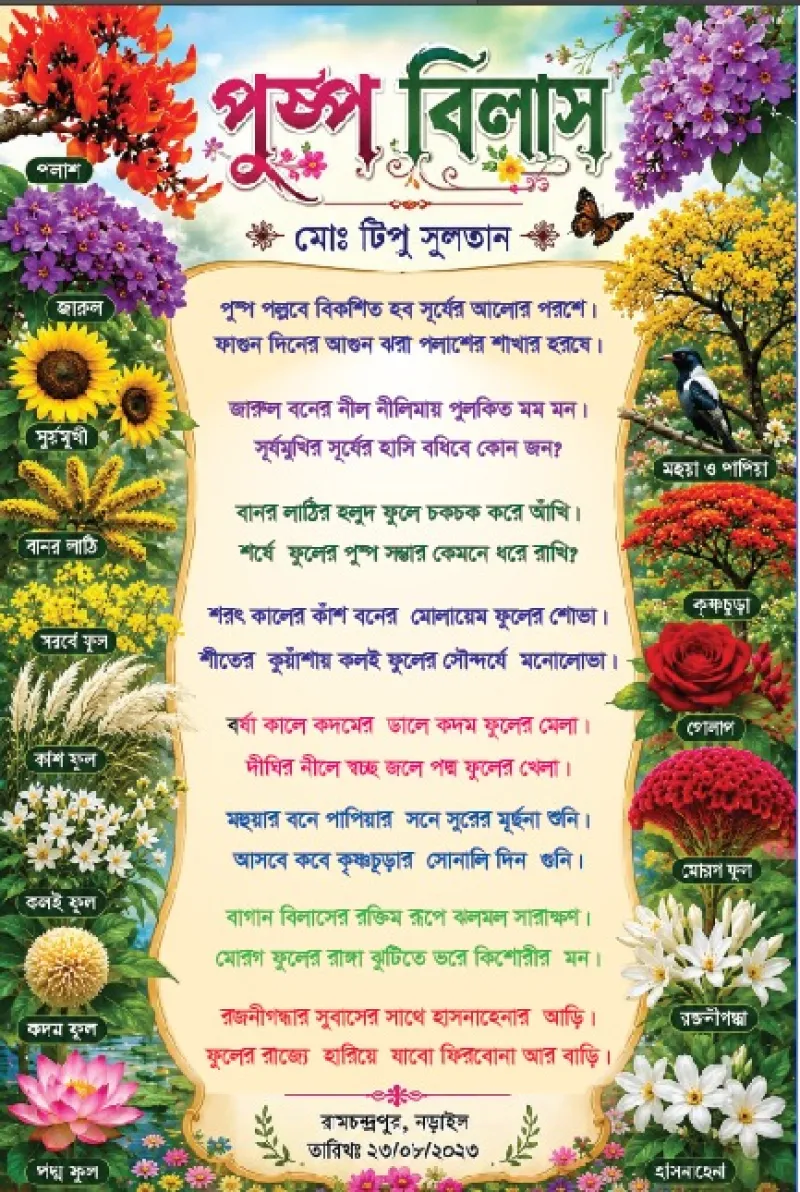 পুষ্প বিলাস
মোঃ টিপু সুলতান
পুষ্প পল্লবে বিকশিত হব সূর্যের আলোর পরশে।
ফাগুন দিনের আগুন ঝরা পলাশের শাখার হরষে।
জারুল বনের নীল নীলিমায় পুলকিত মম মন।
সূর্যমুখির সূর্যের হাসি বধিবে কোন জন?
বানর লাঠির হলুদ ফুলে চকচক করে আঁখি।
শর্ষে ফুলের পুষ্প সম্ভার কেমনে ধরে রাখি?
শরৎ কালের কাঁশ বনের মোলায়েম ফুলের শোভা।
শীতের কুয়াঁশায় কলই ফুলের সৌন্দর্যে মনোলোভা।
বর্ষা কালে কদমের ডালে কদম ফুলের মেলা।
দীঘির নীলে স্বচ্ছ জলে পদ্ম ফুলের খেলা।
মহুয়ার বনে পাপিয়ার সনে সুরের মূর্ছনা শুনি।
আসবে কবে কৃষ্ণচুড়ার সোনালি দিন গুনি।
বাগান বিলাসের রক্তিম রূপে ঝলমল সারাক্ষণ।
মোরগ ফুলের রাঙ্গা ঝুটিতে ভরে কিশোরীর মন।
রজনীগন্ধার সুবাসের সাথে হাসনাহেনার আড়ি।
ফুলের রাজ্যে হারিয়ে যাবো ফিরবোনা আর বাড়ি।
রামচন্দ্রপুর, নড়াইল
তারিখঃ ২৩/০৮/২০২৩
পলাশ
জারুল
সুর্যমুখী
বানর লাঠি
সরর্ষে ফুল
কাঁশ ফুল
কলই ফুল
কদম ফুল
পদ্ম ফুল
মহুয়া ও পাপিয়া
কৃষ্ণচুড়া
গোলাপ
মোরগ ফুল
রজনীগন্ধা
হাসনাহেনা